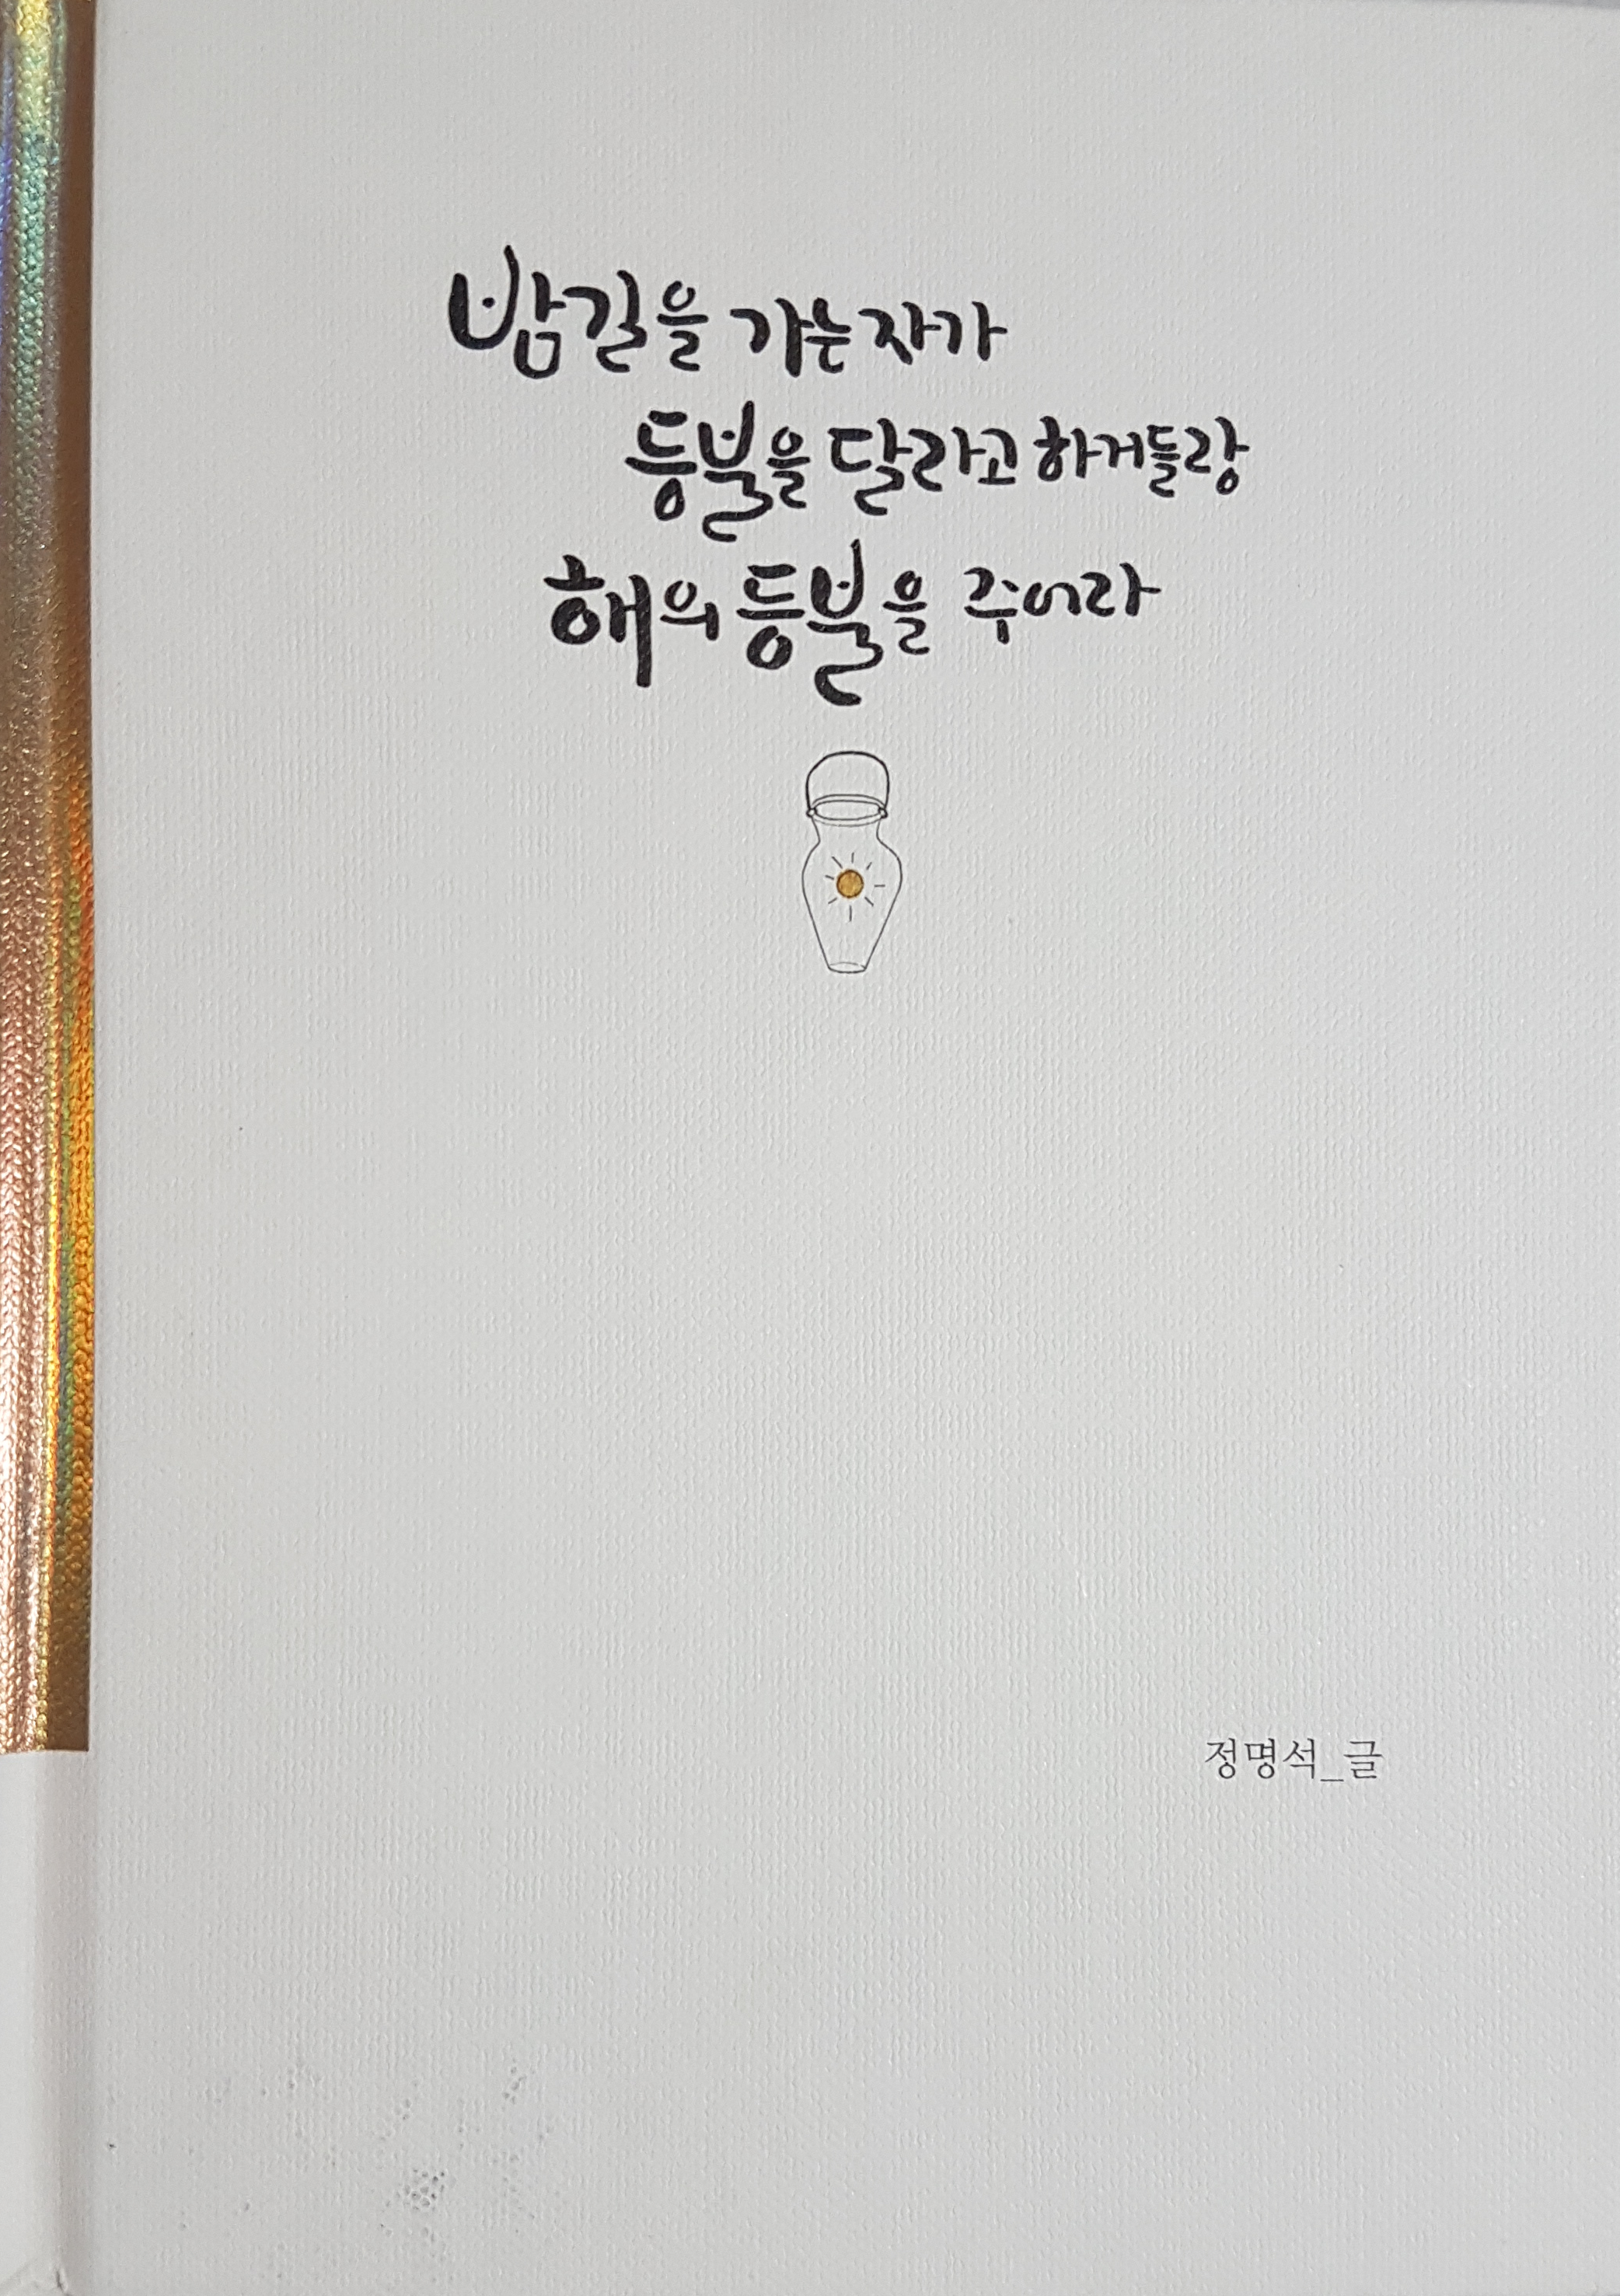 밤길을 가는 자가
등불을 달라고 하거들랑
해의 등불을 주어라
정명석_글